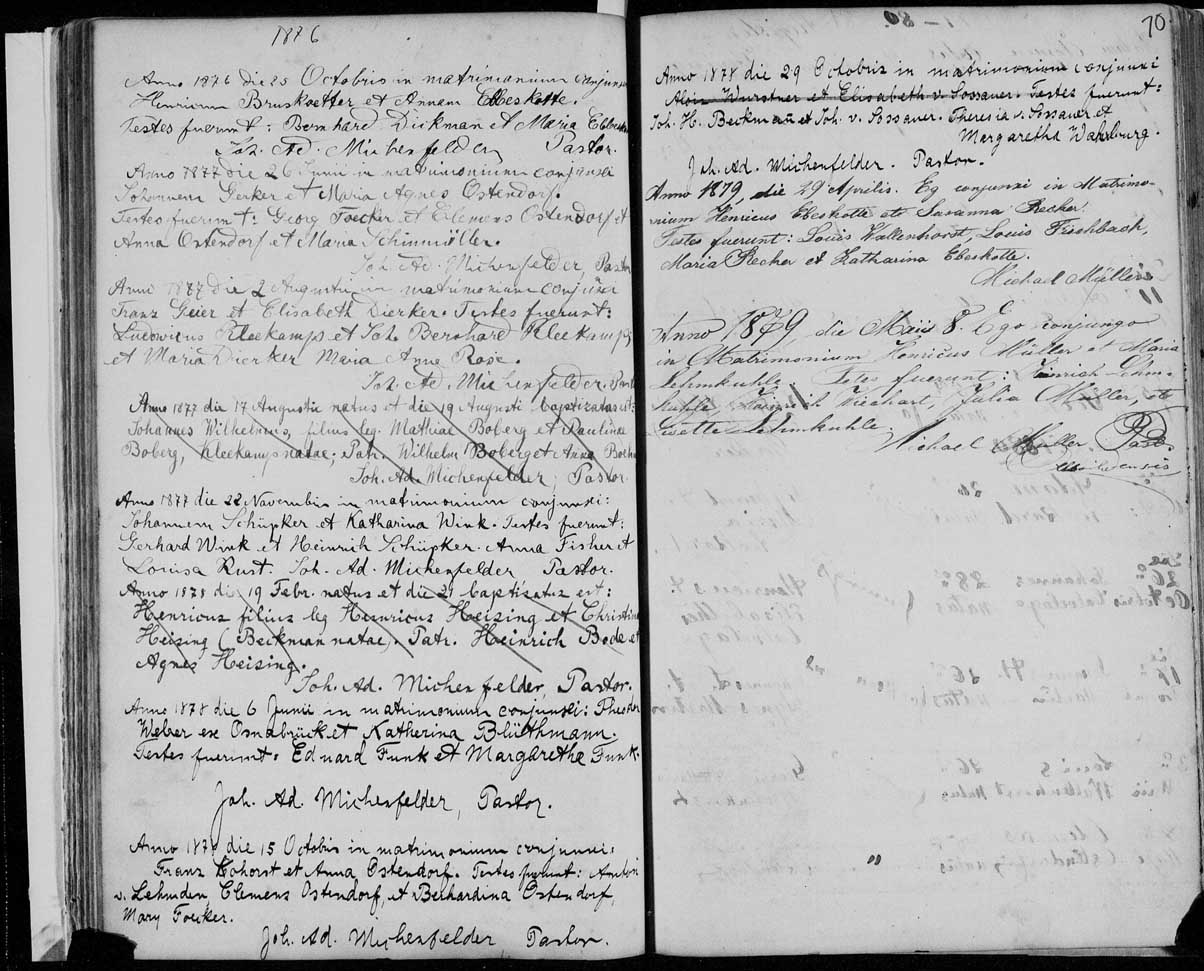 1876
Anno 1876 die 25 Octobris in matrimonium conjunxi
Henricum Bruskoetter et Annam Ebbeskotte.
Testes fuerunt: Bernhard Dickman et Maria
Joh. Ad. Michenfelder, Pastor.
Anno 1877 die 26 Junii in matrimonium conjunxi
Johannem Gerker et Maria Agnes Ostendorf.
Testes fuerunt: Georg Foecker et Clemens Ostendorf et
Anna Ostendorf et Maria Schinmöller.
Joh. Ad. Michenfelder, Pastor
Anno 1877 die 2 Augustii in matrimonium conjunxi
Franz Geier et Elisabeth Dierker. Testes fuerunt:
Ludowicus Kleekamp et Joh. Bernhard Kleekamp
et Maria Dierker Maria Anna Rose.
Joh. Ad. Michenfelder. Past
Anno 1877 die 17 Augusti natus et die 19 Augusti baptizatus est:
Johannes Wilhelmus, filius leg. Mathiae Boberg et Paulinae
Boberg, Kleekamp natae. Patr. Wilhelm Boberg et Anna
Joh. Ad. Michenfelder, Pastor.
Anno 1877 die 22 Novembris in matrimonium conjunxi:
Johannem Schüpker et Katharina Wink. Testes fuerunt:
Gerhard Wink et Heinrich Schüpker. Anna Fisher et
Louisa Rust. Joh. Ad. Michenfelder Pastor.
Anno 1878 die 19 Febr. natus et die 21 baptizatus est:
Henricus filius leg Henricus Heising et Christina
Heising (Beckman natae). Patr. Heinrich Bode et
Agnes Heising.
Joh. Ad. Michenfelder, Pastor.
Anno 1878 die 6 Junii in matrimonium conjunxi: Theodor
Weber ex Osnabrück et Katherina Blüthmann.
Testes fuerunt. Eduard Funk et Margaretha Funk.
Joh. Ad. Michenfelder, Pastor.
Anno 1878 die 15 Octobris in matrimonium conjunxi:
Franz Hohorst et Anna Ostendorf. Testes fuerunt: Anton
v. Lehmden, Clemens Ostendorf, et Berhardina Ostendorf,
Mary Foecker.
Joh. Ad. Michenfelder Pastor.
70
Anno 1878 die 29 Octobris in matrimonium conjunxi
Alois Wurstner et Elisabeth v. Sossauer. Testes fuerunt:
Joh. H. Beckman et Joh. v. Sossauer. Theresia v. Sossauer et
Margaretha Wahlburg.
Joh. Ad. Michenfelder. Pastor.
Anno 1879, die 29 Aprilis. Eg conjunxi in Matrimo-
nium Henricus Ebeskotte et Susanna Recker.
Testes fuerunt: Louis Wallenhorst, Louis Fischbach,
Maria Recker et Katharina Ebeskotte.
Michael Müller
Anno 1879, die Maii 8. Ego conjungo
in Matrimonium Henricus Müller et Maria
Lehmkuhle. Testes fuerunt: Heinrich Lehm-
kuhle, Heinrich Wiechart, Julia Müller, et
Lisette Lehmkuhle.
Michael Müller Past.